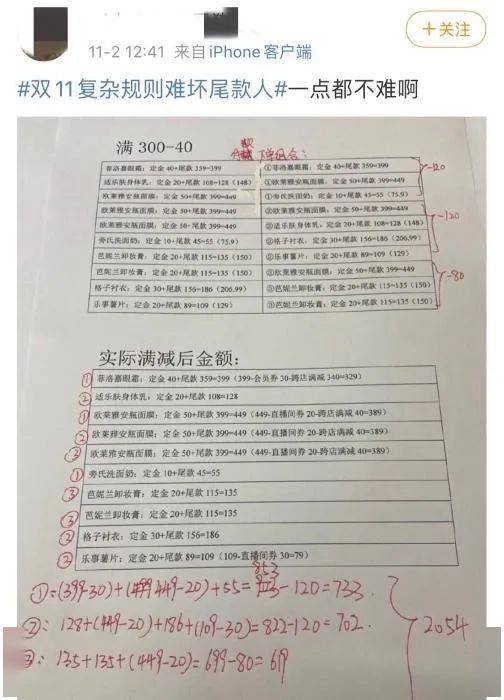 +关注
11-2 12:41 来自 iPhone客户端
#双11复杂规则难坏尾款人#一点都不难啊
满 300-40
下单组合:
菲洛嘉眼霜:定金 40+尾款 359=399
①菲洛嘉眼霜:定金 40+尾款 359=399
适乐肤身体乳:定金 20+尾款 108=128(148)
①欧莱雅安瓶面膜:定金 50+尾款 399=449
欧莱雅安瓶面膜:定金 50+尾款 399=449
①旁氏洗面奶:定金 10+尾款 45=55(75.9)
-120
欧莱雅安瓶面膜:定金 50+尾款 399=449
②欧莱雅安瓶面膜:定金 50+尾款 399=449
欧莱雅安瓶面膜:定金 50+尾款 399=449
②适乐肤身体乳:定金 20+尾款 108=128(148)
旁氏洗面奶:定金 10+尾款 45=55(75.9)
②格子衬衣:定金 30+尾款 156=186(206.99)
芭妮兰卸妆膏:定金 20+尾款 115=135(150)
②乐事薯片:定金 20+尾款 89=109(129)
-120
芭妮兰卸妆膏:定金 20+尾款 115=135(150)
③欧莱雅安瓶面膜:定金 50+尾款 399=449
格子衬衣:定金 30+尾款 156=186(206.99)
③芭妮兰卸妆膏:定金 20+尾款 115=135(150)
乐事薯片:定金 20+尾款 89=109(129)
③芭妮兰卸妆膏:定金 20+尾款 115=135(150)
-80
实际满减后金额:
① 菲洛嘉眼霜:定金 40+尾款 359=399(399-会员券 30-跨店满减 340=329)
② 适乐肤身体乳:定金 20+尾款 108=128
① 欧莱雅安瓶面膜:定金 50+尾款 399=449(449-直播间券 20-跨店满减 40=389)
② 欧莱雅安瓶面膜:定金 50+尾款 399=449(449-直播间券 20-跨店满减 40=389)
欧莱雅安瓶面膜:定金 50+尾款 399=449(449-直播间券 20-跨店满减 40=389)
① 旁氏洗面奶:定金 10+尾款 45=55
③ 芭妮兰卸妆膏:定金 20+尾款 115=135
③ 芭妮兰卸妆膏:定金 20+尾款 115=135
② 格子衬衣:定金 30+尾款 156=186
② 乐事薯片:定金 20+尾款 89=109(109-直播间券 30=79)
①=(399-30)+(449-20)+55=853-120=733
②:128+(449-20)+186+(109-30)=822-120=702
③:135+135+(449-20)=699-80=619
2054